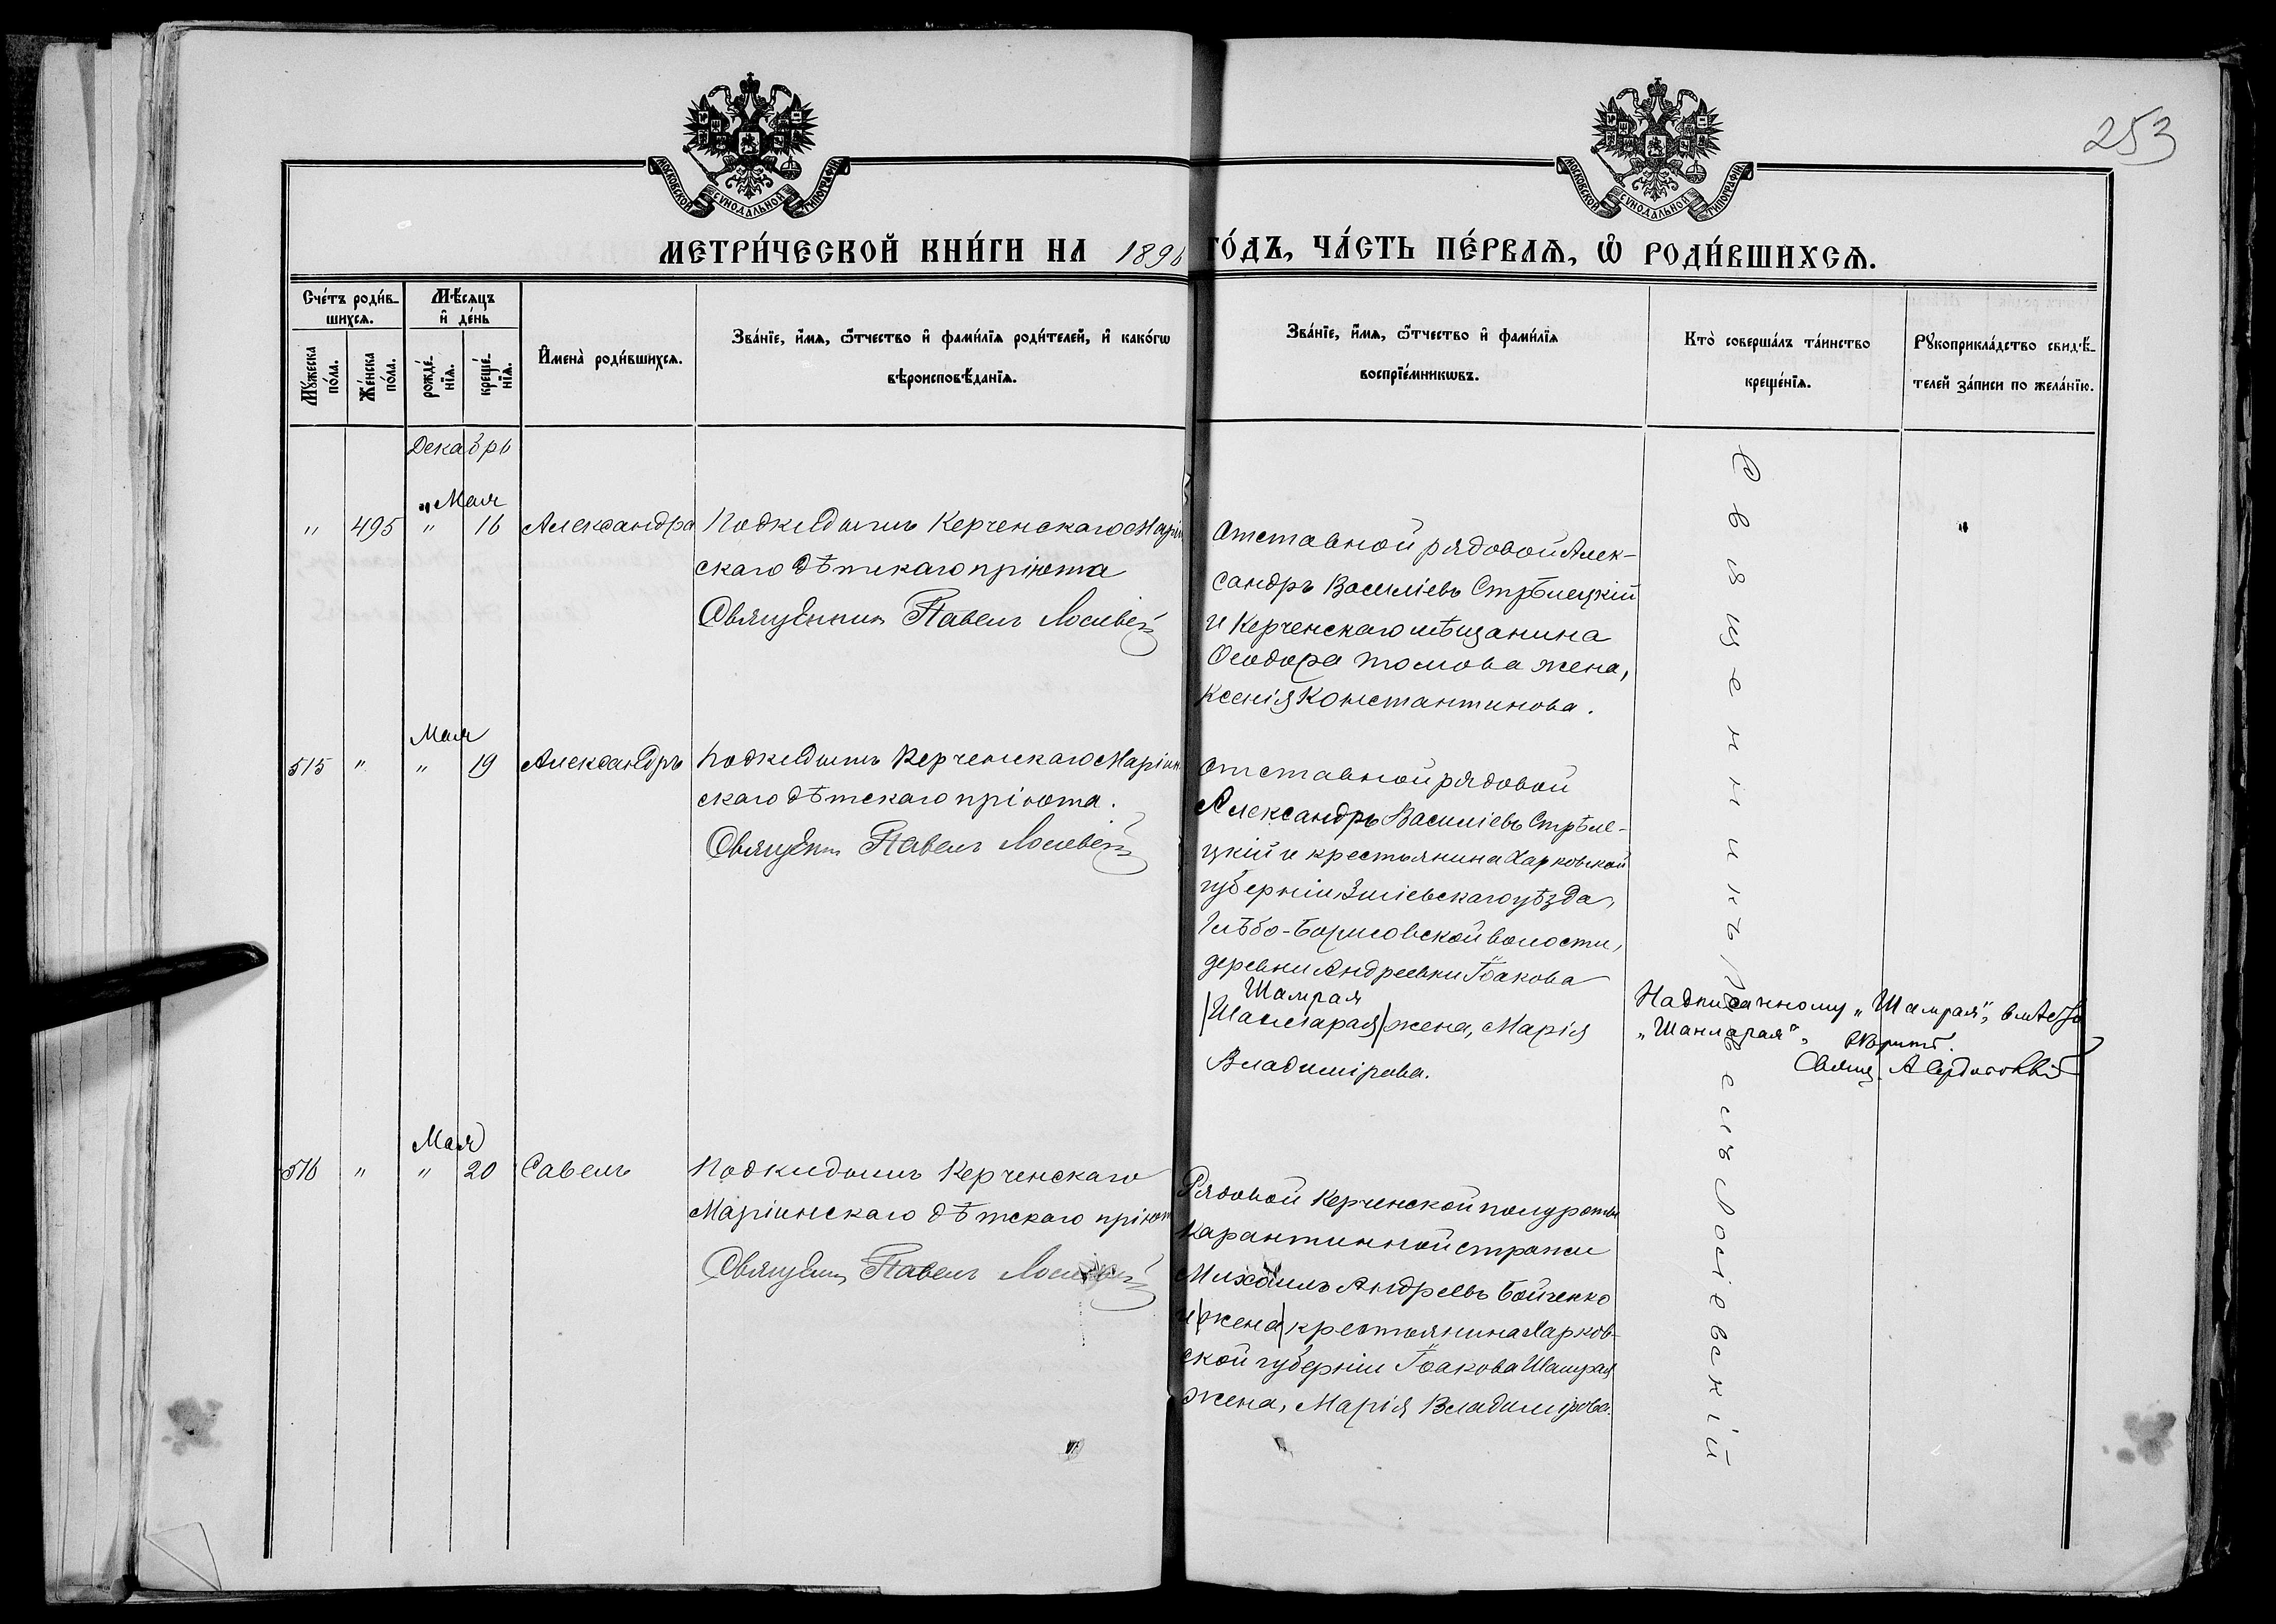 253
МОСКОВСКОЙ СѴНОДАЛЬНОЙ ТИПОГРАФІИ
МОСКОВСКОЙ СѴНОДАЛЬНОЙ ТИПОГРАФІИ
МЕТРИ́ЧЕСКОЙ КНИ́ГИ НА 1896 ГО́ДЪ, ЧА́СТЬ ПЕ́РВАѦ, Ѽ РОДИ́ВШИХСѦ.
Сче́тъ роди́в-
шихсѧ.
Мꙋ́жеска по́ла.
Же́нска по́ла.
Мѣ́сѧцъ
и҆ де́нь
рожде́-
нїѧ.
креще́-
нїѧ.
И҆мена̀ роди́вшихсѧ.
Зва́нїе, и҆́мѧ, ѻ҆́тчество и҆ фами́лїѧ роди́телей, и҆ како́гѡ
вѣроисповѣ́данїѧ.
Зва́нїе, и҆́мѧ, ѻ҆́тчество и҆ фами́лїѧ
воспрїе́мникѡвъ.
Кто̀ соверша́лъ та́инство
креще́нїѧ.
Рꙋкоприкла́дство свидѣ́-
телей за́писи по жела́нїю.
Декабрь
„ Мая
" 495 " 16 Александра Подкидышъ Керченскаго Марiин
скаго дѣтскаго пріюта
Священникъ Павелъ Лосіевскій
Отставной рядовой Алек-
сандръ Василіевъ Стрѣлецкій
и Керченскаго мѣщанина
Ѳеодора Томова жена,
Ксенія Константинова.
Мая
515 " " 19 Александръ Подкидышъ Керченскаго Маріин
скаго дѣтскаго пріюта.
Священн Павелъ Лосіевскій
Отставной рядовой
Александръ Василіевъ Стрѣле-
цкій и крестьянина Харковской
губерніи, Зміевскаго уѣзда,
Глѣбо-Борисовской волости,
деревни Андреевки Іакова
Шамрая
/Шанмарая/ жена, Марія
Владимірова.
Надписанному „Шамрая", вмѣсто
„Шанмарая", вѣрить.
Свящ. А
Мая
516 " " 20 Савелъ Подкидышъ Керченскаго
Маріинскаго дѣтскаго пріют
Священн Павелъ Лосіевскій
Рядовой Керченской полуроты
карантинной стражи
Михаилъ Андреевъ Бойченко
и /жена/ крестьянина Харков-
ской губерніи Іакова Шамрая
жена, Марія Владимірова.
Священникъ Павелъ Лосіевскій